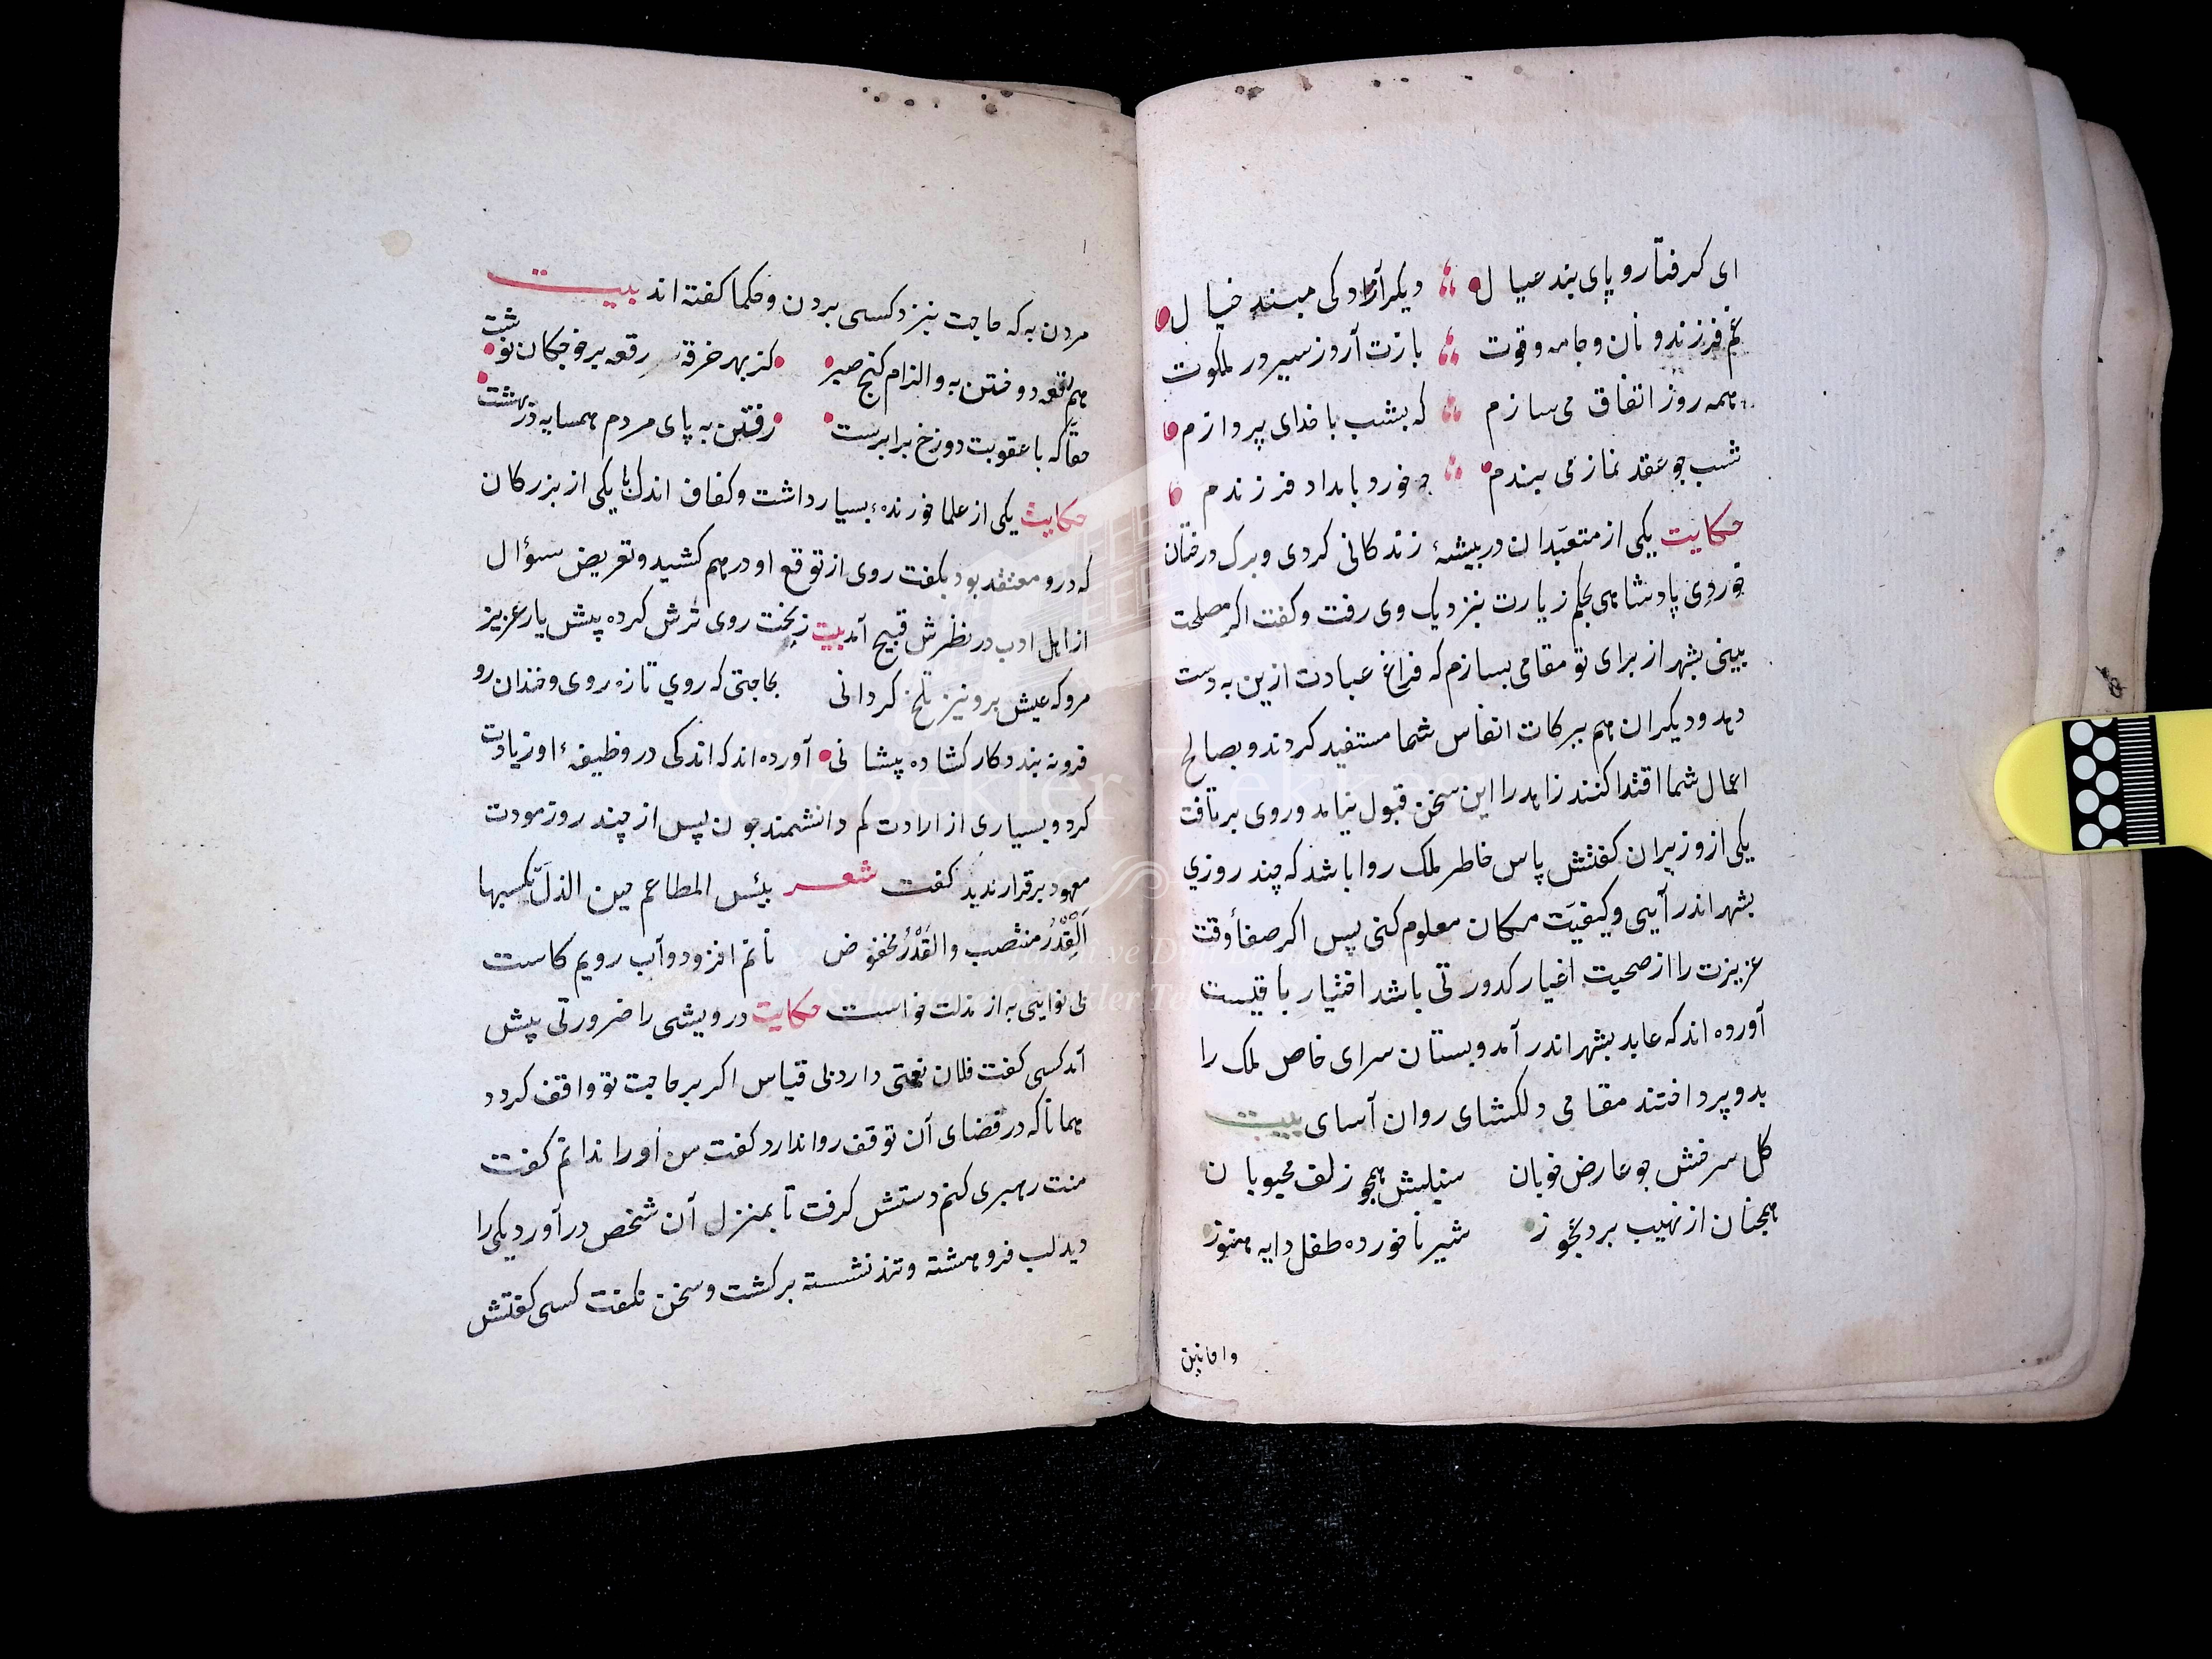 ای کرفتار و پای بند عیال دیکر آزادکی مبند خیال
غم فرزند و نان و جامه و قوت بازت آرد ز سیر در ملکوت
همه روز اتفاق می سازم که بشب با خدای پردازم
شب چو عقد نماز می بندم چه خورد بامداد فرزندم
حکایت یکی از متعبدان در بیشهٔ زندکانی کردی و برک درختان
خوردی پادشاهی بحکم زیارت بنزدیک وی رفت و کفت اکر مصلحت
بینی بشهر از برای تو مقامی بسازم که فراغ عبادت ازین به دست
دهد و دیکران هم ببرکات انفاس شما مستفید کردند و بصالح
اعمال شما اقتدا کنند زاهد را این سخن قبول نیامد و روی برتافت
یکی از وزیران کفتش پاس خاطر ملک روا باشد که چند روزي
بشهر اندر آیی و کیفیت مکان معلوم کنی پس اکر صفاء وقت
عزیزت را از صحبت اغیار کدورتی باشد اختیار باقیست
آورده اند که عابد بشهر اندر آمد و بستان سرای خاص ملک را
بدو پرداختند مقامی دلکشای روان آسای بیت
کل سرخش چو عارض خوبان سنبلش همچو زلف محبوبان
همچنان از نهیب برد عجوز شیر ناخورده طفل دایه هنوز
وافانین
مردن به که حاجت بنزد کسی بردن و حکما کفته اند بیت
هم رقعه دوختن به و الزام کنج صبر کز بهر خرقه رقعه بر خوجکان نوشت
حقا که با عقوبت دوزخ برابرست رفتن به پای مردم همسایه در بهشت
حکایت یکی از علما خورندهٔ بسیار داشت و کفاف اندک با یکی از بزرکان
که درو معتقد بود بکفت روی از توقع او درهم کشید و تعریض سؤال
از اهل ادب در نظرش قبیح آمد بیت ز بخت روی ترش کرده پیش یار عزیز
مرو که عیش برو نیز تلخ کردانی بحاجتی که روي تازه روی و خندان رو
فرو نه بندد کار کشاده پیشانی آورده اند که اندکی در وظیفهٔ او زیادت
کرد و بسیاری از ارادت کم دانشمند چون پس از چند روز مودت
معهود برقرار ندید کفت شعر بئس المطاعم حین الذل تکسبها
اَلْقِدْرُ منتصب والقَدْرُ مخفوض نانم افزود و آب رویم کاست
بی نوایی به از مذلت خواست حکایت درویشی را ضرورتی پیش
آمد کسی کفت فلان نعمتی دارد بی قیاس اکر بر حاجت تو واقف کردد
همانا که در قضای آن توقف روا ندارد کفت من او را ندانم کفت
منت رهبری کنم دستش کرفت تا بمنزل آن شخص درآورد یکی را
دید لب فروهشته و تند نشسته برکشت و سخن نکفت کسی کفتش